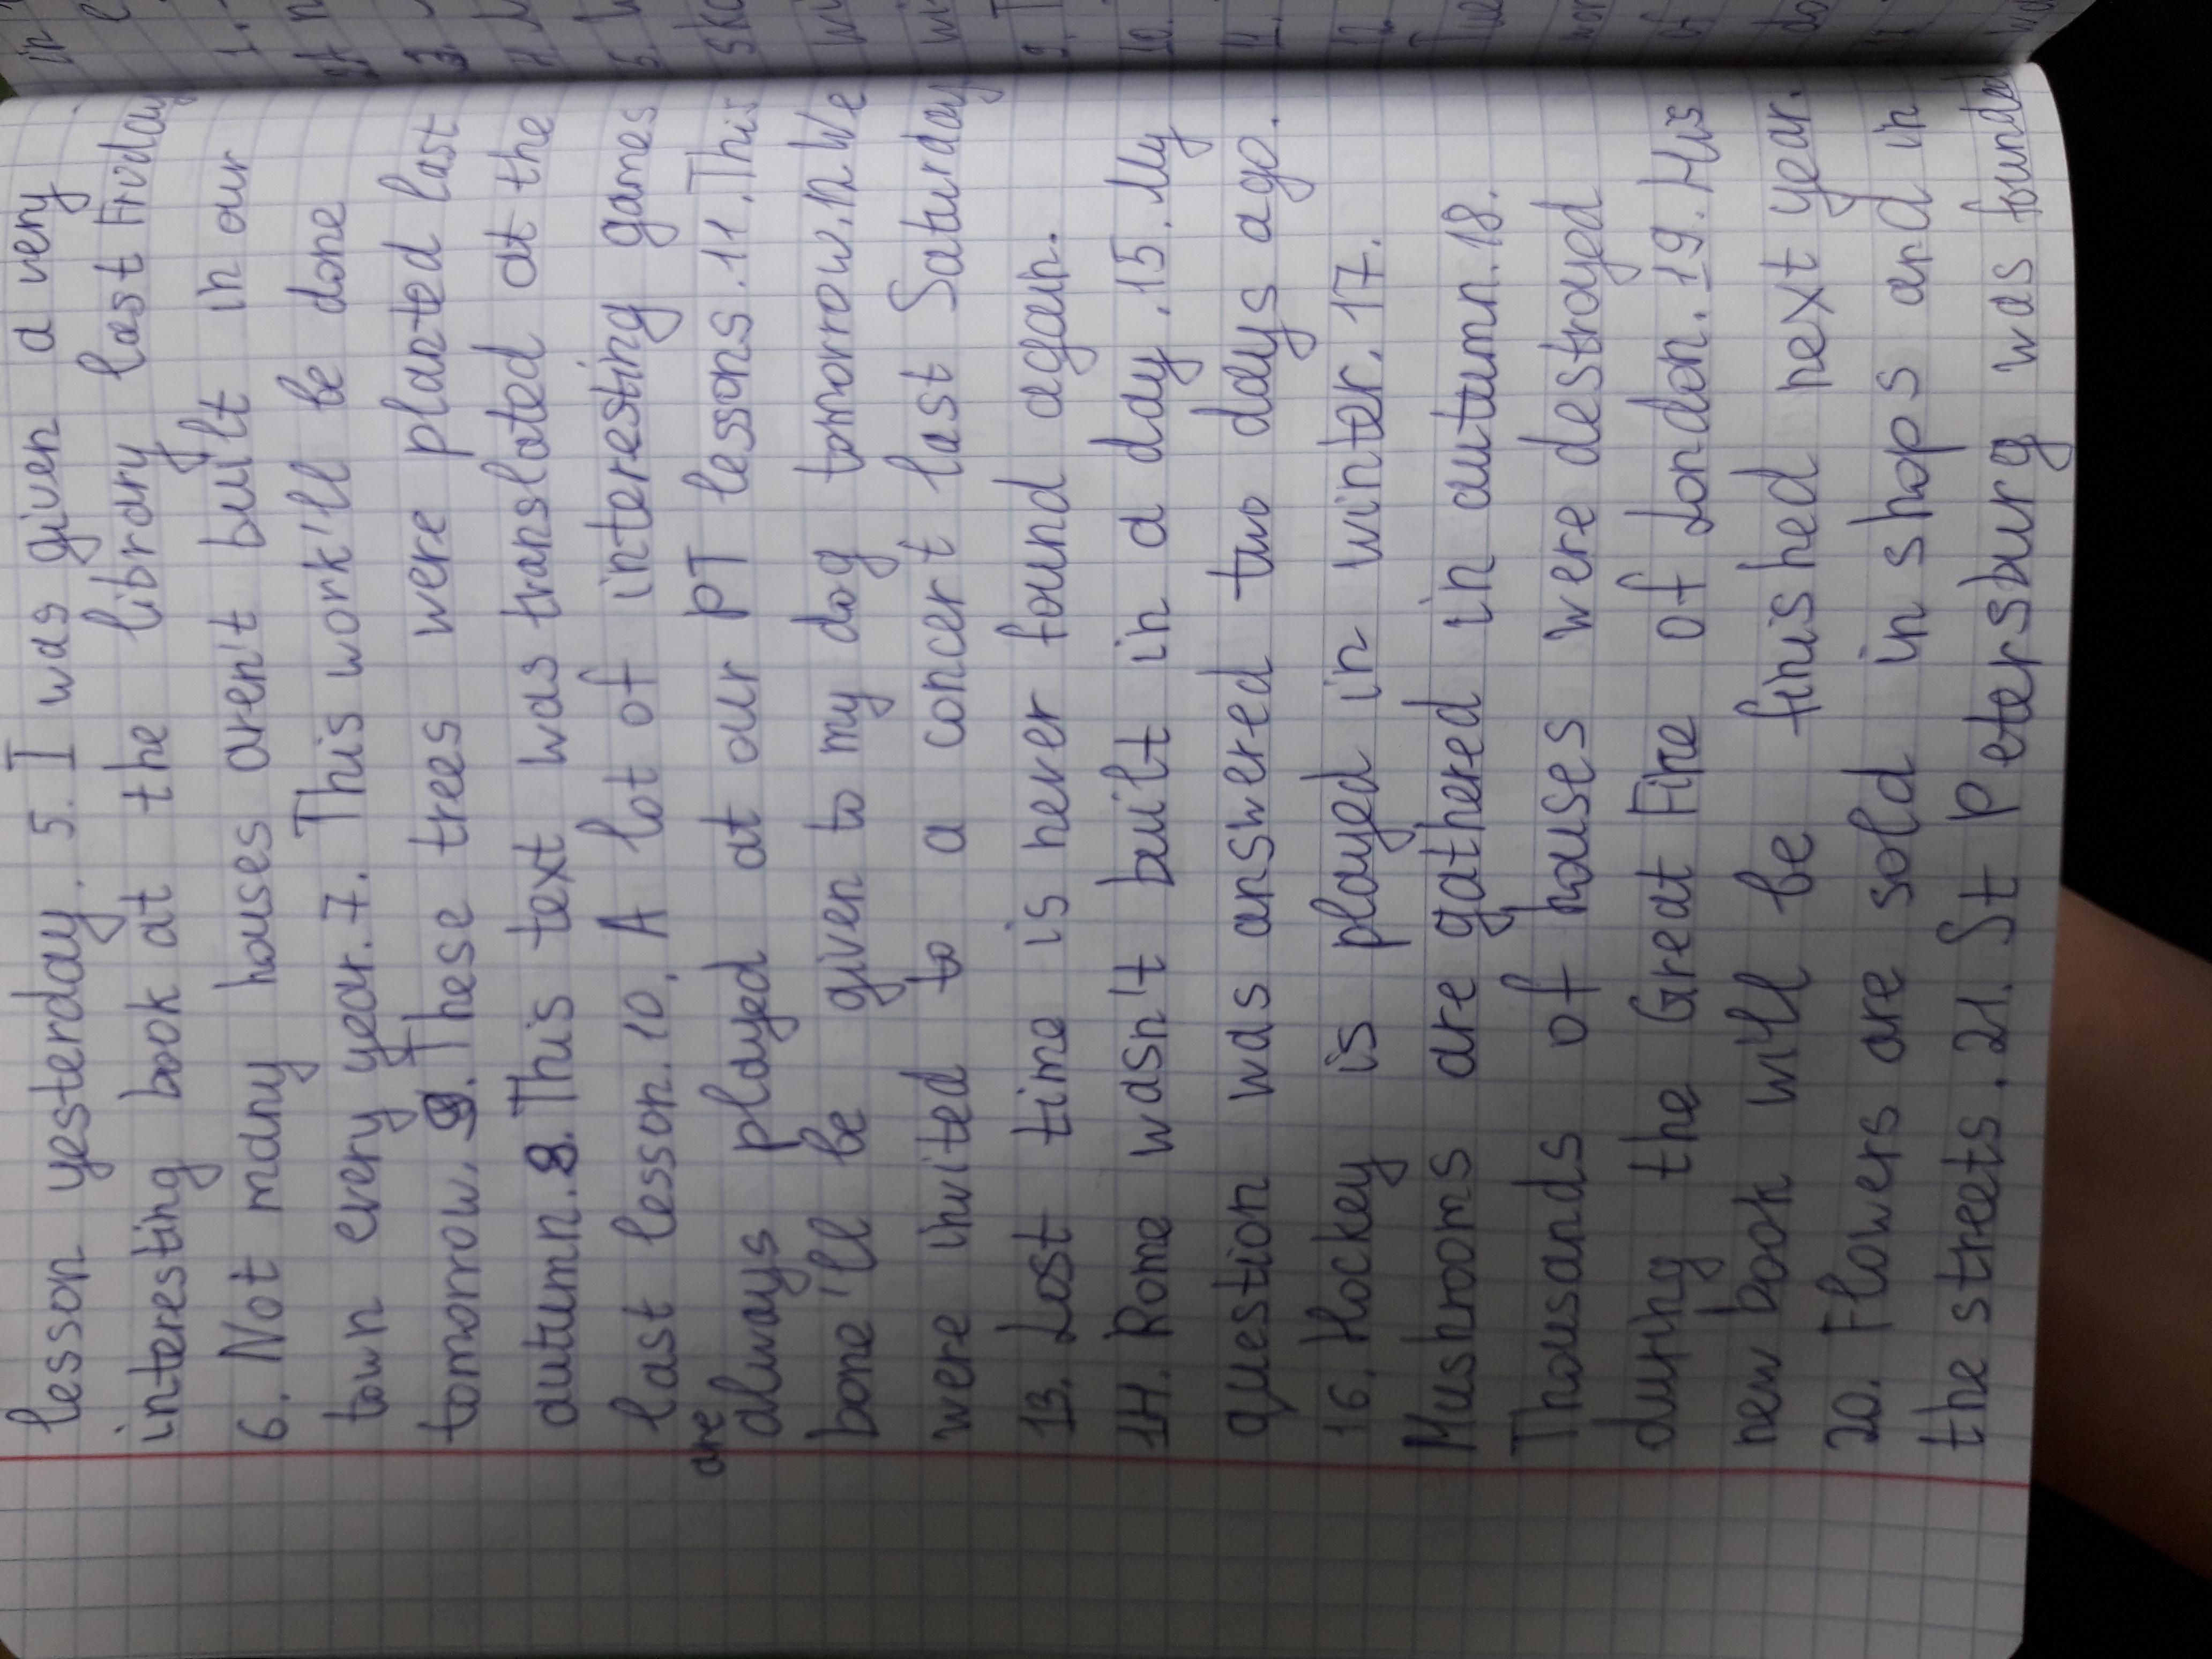 lesson yesterday. 5. I was given a very
interesting book at the library last Friday
6. Not many houses aren't built in our
town every year. 7. This work'll be done
tomorrow. 9. These trees were planted last
autumn. 8. This text was translated at the
last lesson. 10. A lot of interesting games
are always played at our PT lessons. 11. This
bone'll be given to my dog tomorrow. 12 We
were invited to a concert last Saturday
13. Lost time is never found again.
14. Rome wasn't built in a day. 15. My
question was answered two days ago.
16. Hockey is played in winter. 17.
Mushrooms are gathered in autumn. 18.
Thousands of houses were destroyed
during the Great Fire of London. 19. His
new book will be finished next year.
20. Flowers are sold in shops and in
the streets. 21. St Petersburg was founded